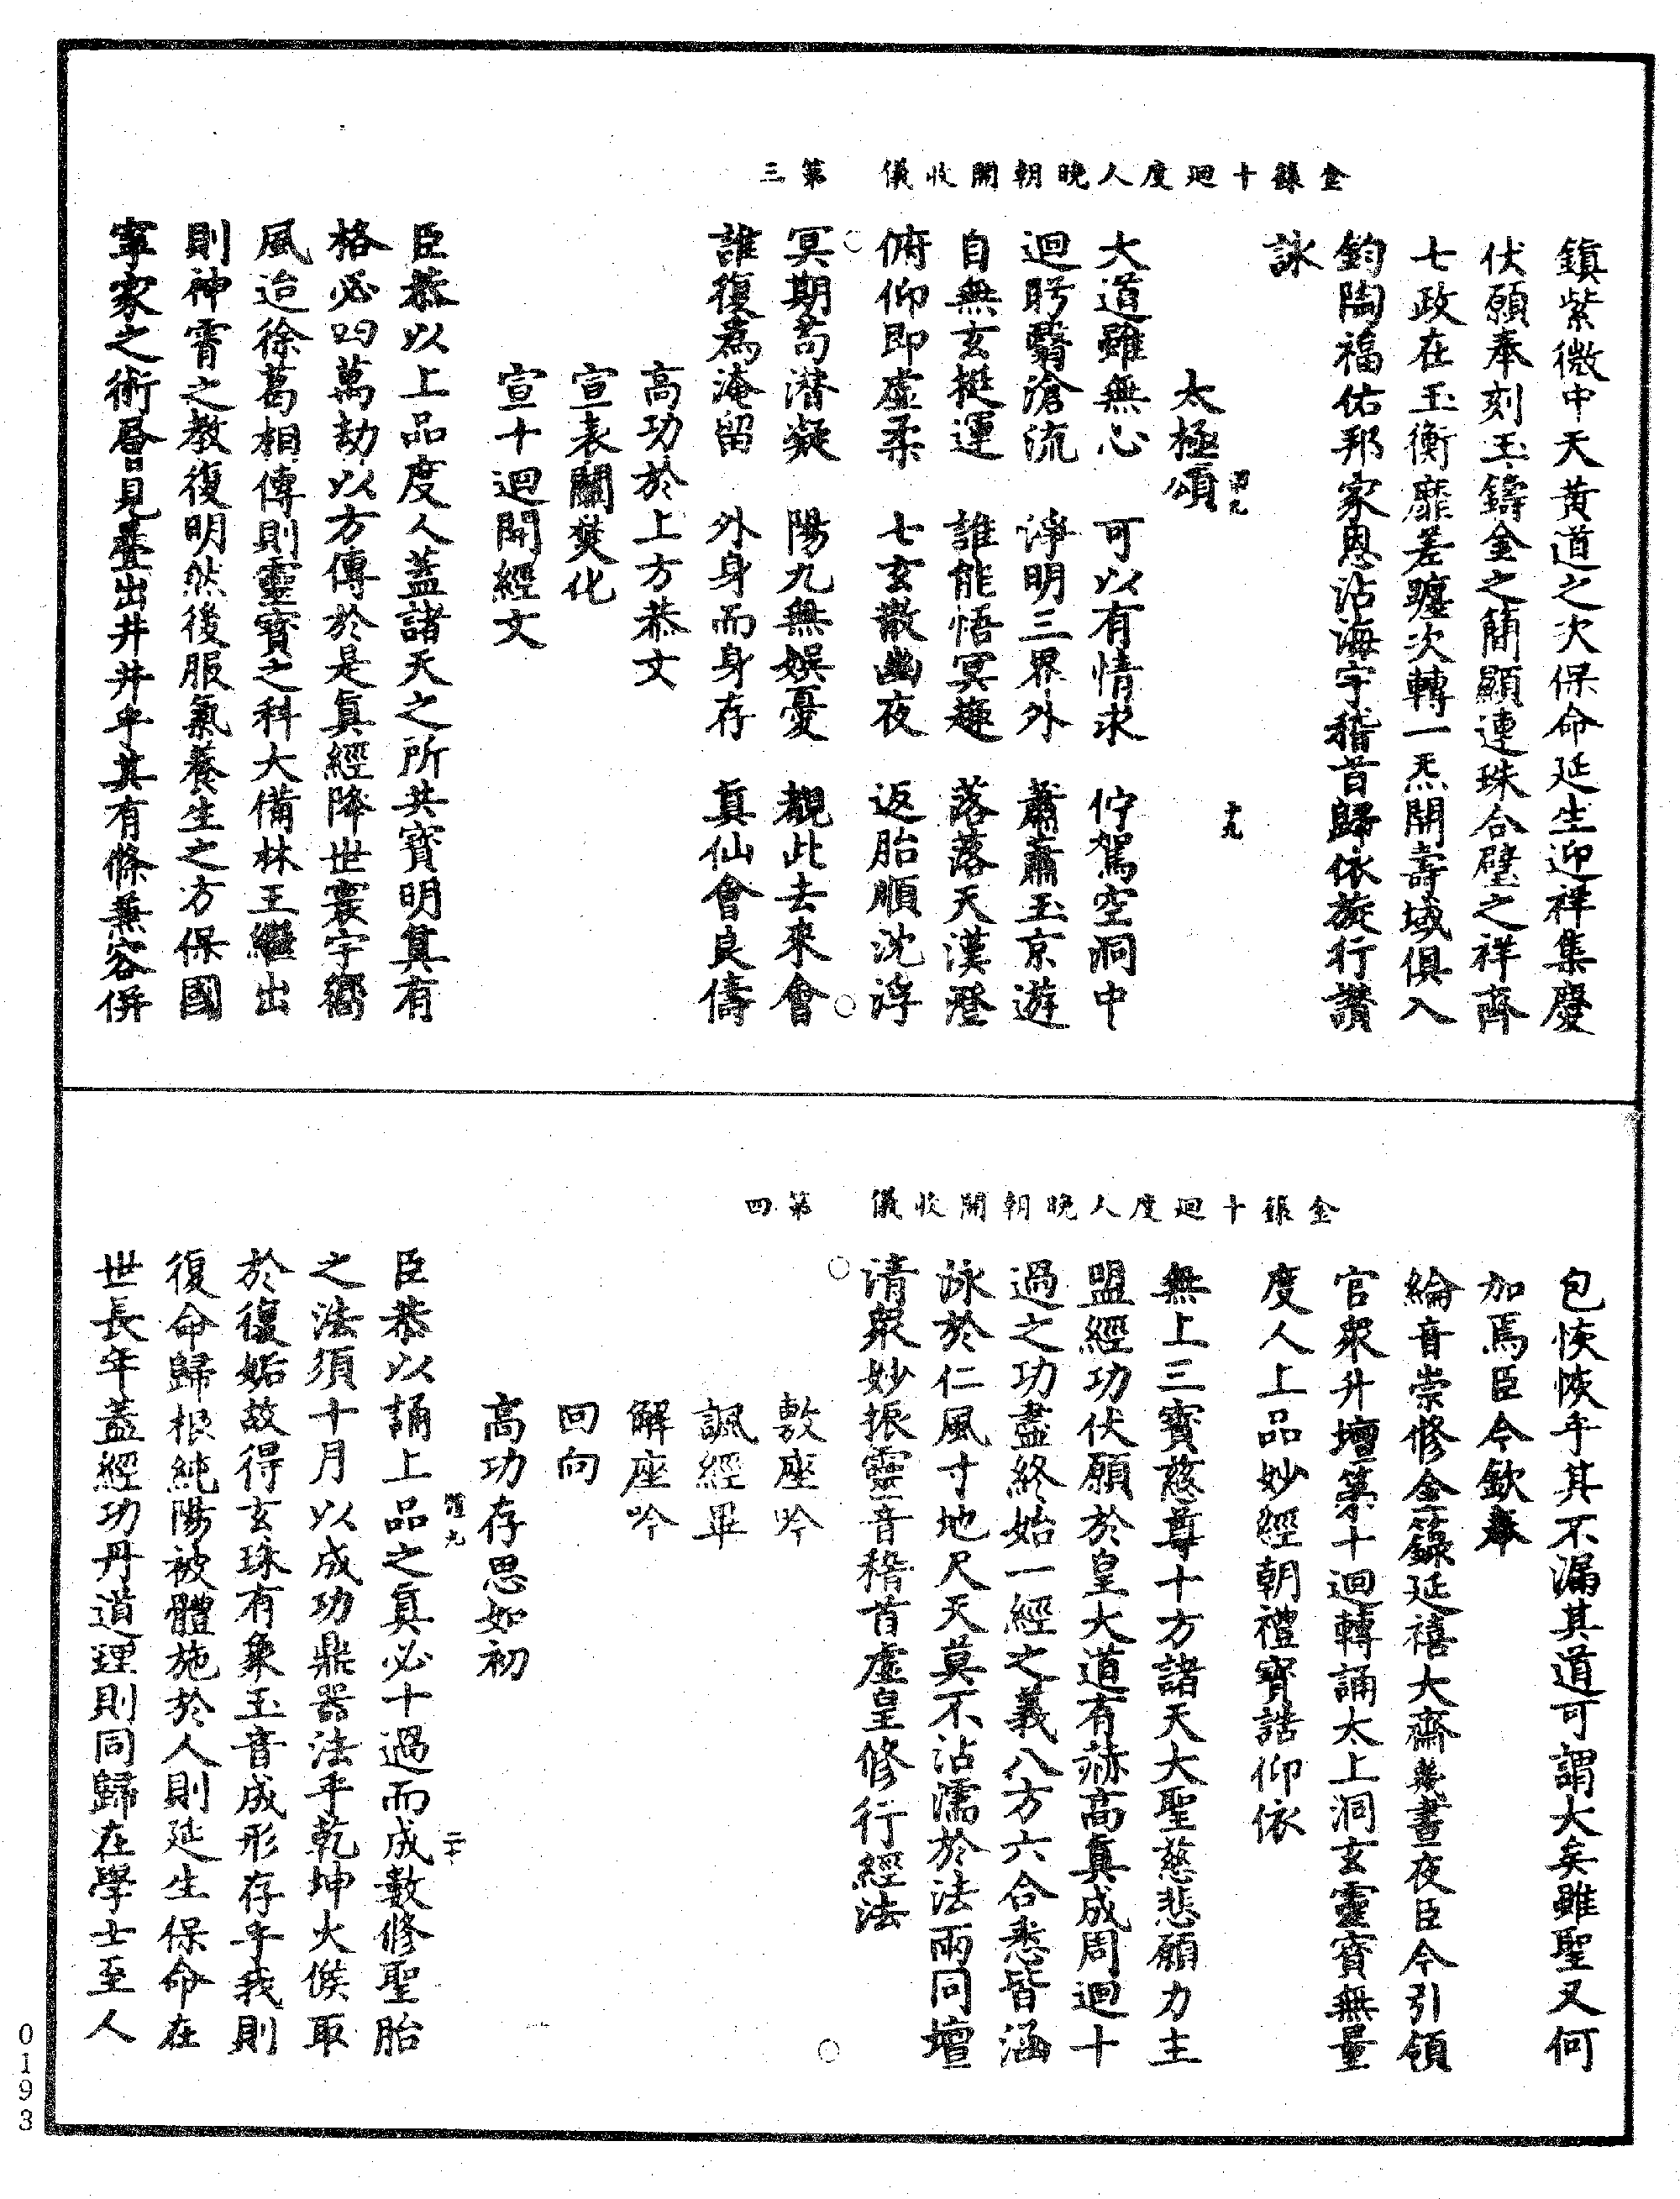 金籙十迴度人晚朝開收儀　第三
鎮紫微中天黃道之次保命延生迎祥集慶
伏願奉刻玉鑄金之簡顯連珠合璧之祥齊
七政在玉衡靡差躔次轉一炁開壽域俱入
鈞陶福佑邦家恩沾海宇稽首歸依旋行讚
詠
太極頌
十九
大道雖無心　可以有情求　佇駕空洞中
迴眄翳滄流　淨明三界外　蕭蕭玉京遊
自無玄挺運　誰能悟冥趣　落落天漢澄
俯仰即虛柔　七玄散幽夜　返胎順沈浮
冥期苟潛凝　陽九無娛憂　觀此去來會
誰復為淹留　外身而身存　真仙會良儔
高功於上方恭文
宣表關焚化
宣十迴開經文
臣恭以上品度人蓋諸天之所共寶明真有
格必四萬劫以方傳於是真經降世寰宇嚮
風迨徐葛相傳則靈寶之科大備林王繼出
則神霄之教復明然後服氣養生之方保國
寧家之術層見疊出井井乎其有條兼容併
金籙十迴度人晚朝開收儀　第四
包恢恢乎其不漏其道可謂大矣雖聖又何
加焉臣今欽奉
綸音崇修金籙延禧大齋幾晝夜臣今引領
官眾升壇第十迴轉誦太上洞玄靈寶無量
度人上品妙經朝禮寶誥仰依
無上三寶慈尊十方諸天大聖慈悲願力主
盟經功伏願於皇大道有赫高真成周迴十
過之功盡終始一經之義八方六合悉皆涵
詠於仁風寸地尺天莫不沾濡於法雨同壇
清眾妙振靈音稽首虛皇修行經法
敷座吟
諷經畢
解座吟
回向
高功存思如初
二十
臣恭以誦上品之真必十過而成數修聖胎
之法須十月以成功鼎器法乎乾坤火候取
於復姤故得玄珠有象玉音成形存乎我則
復命歸根純陽被體施於人則延生保命在
世長年蓋經功丹道理則同歸在學士至人
0193